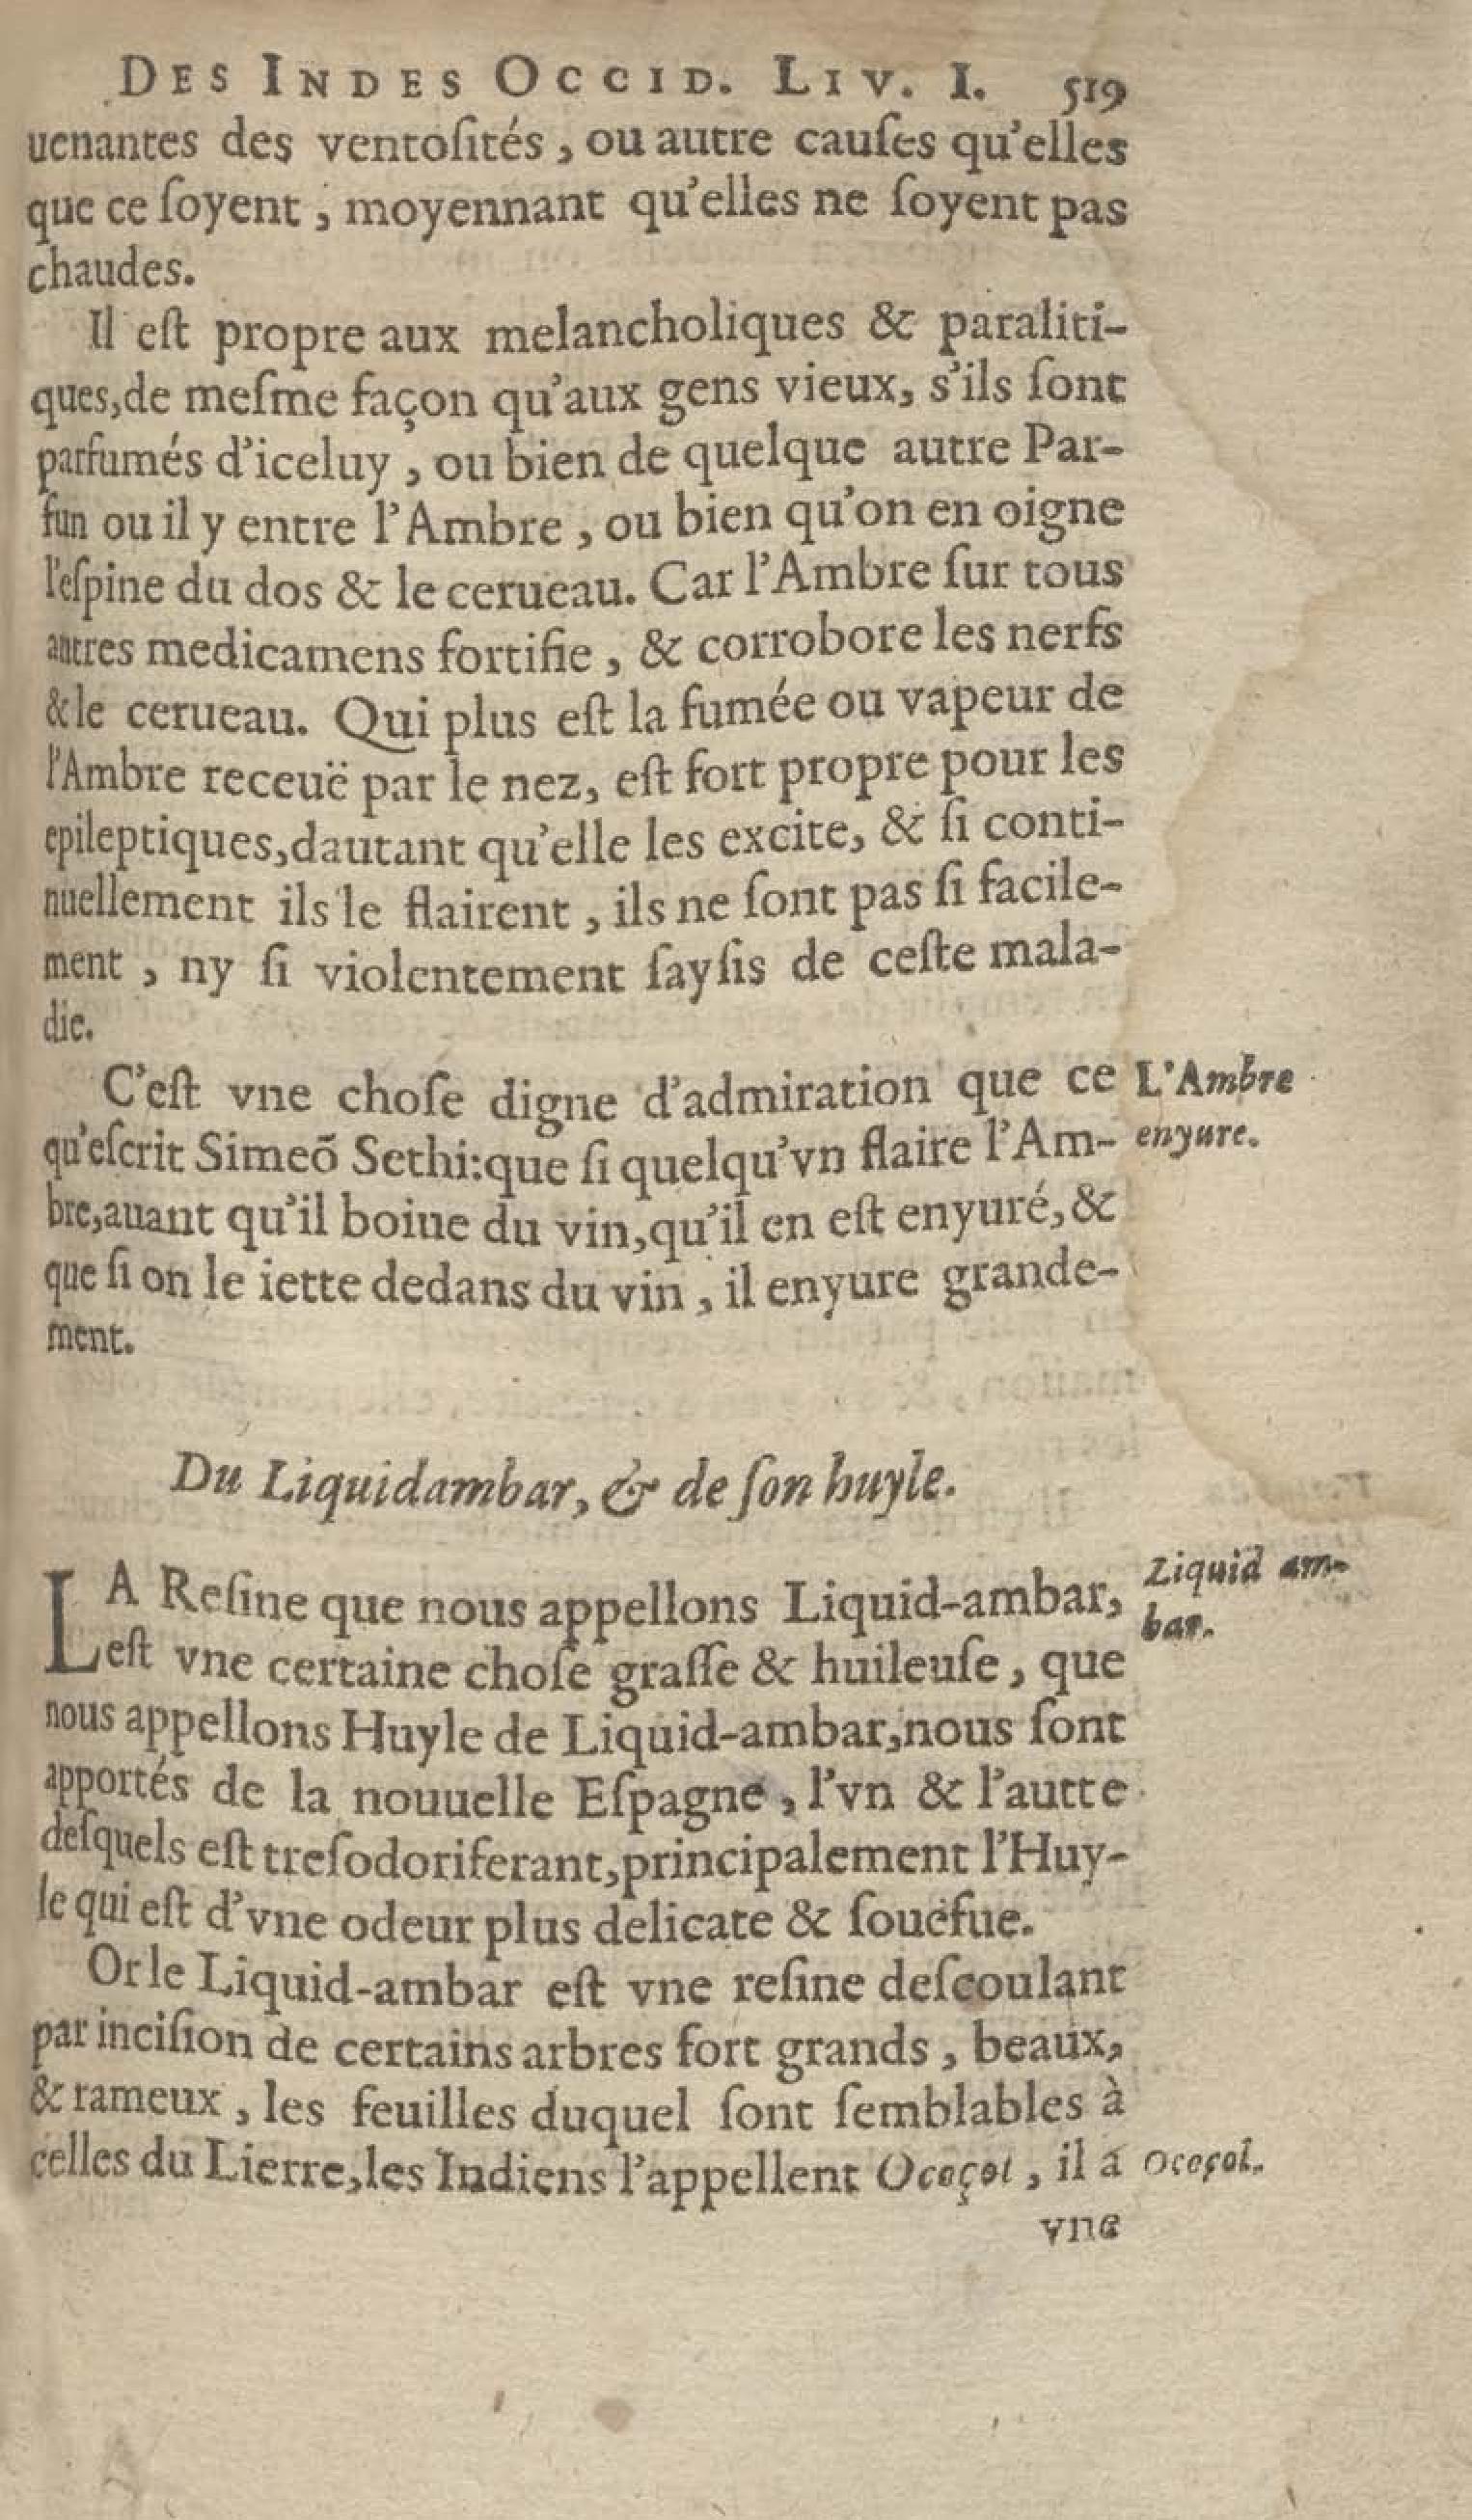 DES INDES OCCID. LIV. I. 519
uenantes des ventoſités, ou autre cauſes qu'elles
que ce ſoyent, moyennant qu'elles ne ſoyent pas
chaudes.
Il eſt propre aux melancholiques & paraliti-
ques, de meſme façon qu'aux gens vieux, s'ils ſont
parfumés d'iceluy, ou bien de quelque autre Par-
fun ou il y entre l'Ambre, ou bien qu'on en oigne
l'eſpine du dos & le cerueau. Car l'Ambre ſur tous
autres medicamens fortifie, & corrobore les nerfs
& le cerueau. Qui plus eſt la fumée ou vapeur de
l'Ambre receuë par le nez, eſt fort propre pour les
epileptiques, dautant qu'elle les excite, & ſi conti-
nuellement ils le flairent, ils ne ſont pas ſi facile-
ment, ny ſi violentement ſayſis de ceſte mala-
die.
C'eſt vne choſe digne d'admiration que ce
L'Ambre
qu'eſcrit Simeõ Sethi: que ſi quelqu'vn flaire l'Am-
enyure.
bre, auant qu'il boiue du vin, qu'il en eſt enyuré, &
que ſi on le iette dedans du vin, il enyure grande-
ment.
Du Liquidambar, & de ſon huyle.
LA Reſine que nous appellons Liquid-ambar,
Liquid am-
eſt vne certaine choſe graſſe & huileuſe, que
bar.
nous appellons Huyle de Liquid-ambar, nous ſont
apportés de la nouuelle Eſpagne, l'vn & l'autte
deſquels eſt treſodoriferant, principalement l'Huy-
le qui eſt d'vne odeur plus delicate & ſouéfue.
Or le Liquid-ambar eſt vne reſine deſcoulant
par inciſion de certains arbres fort grands, beaux,
& rameux, les feuilles duquel ſont ſemblables à
celles du Lierre, les Indiens l'appellent Ococol, il a
Ococol.
vne